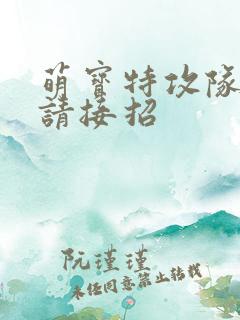 萌寶特攻隊
請接招
阮瑾瑾
未经同意禁止转载